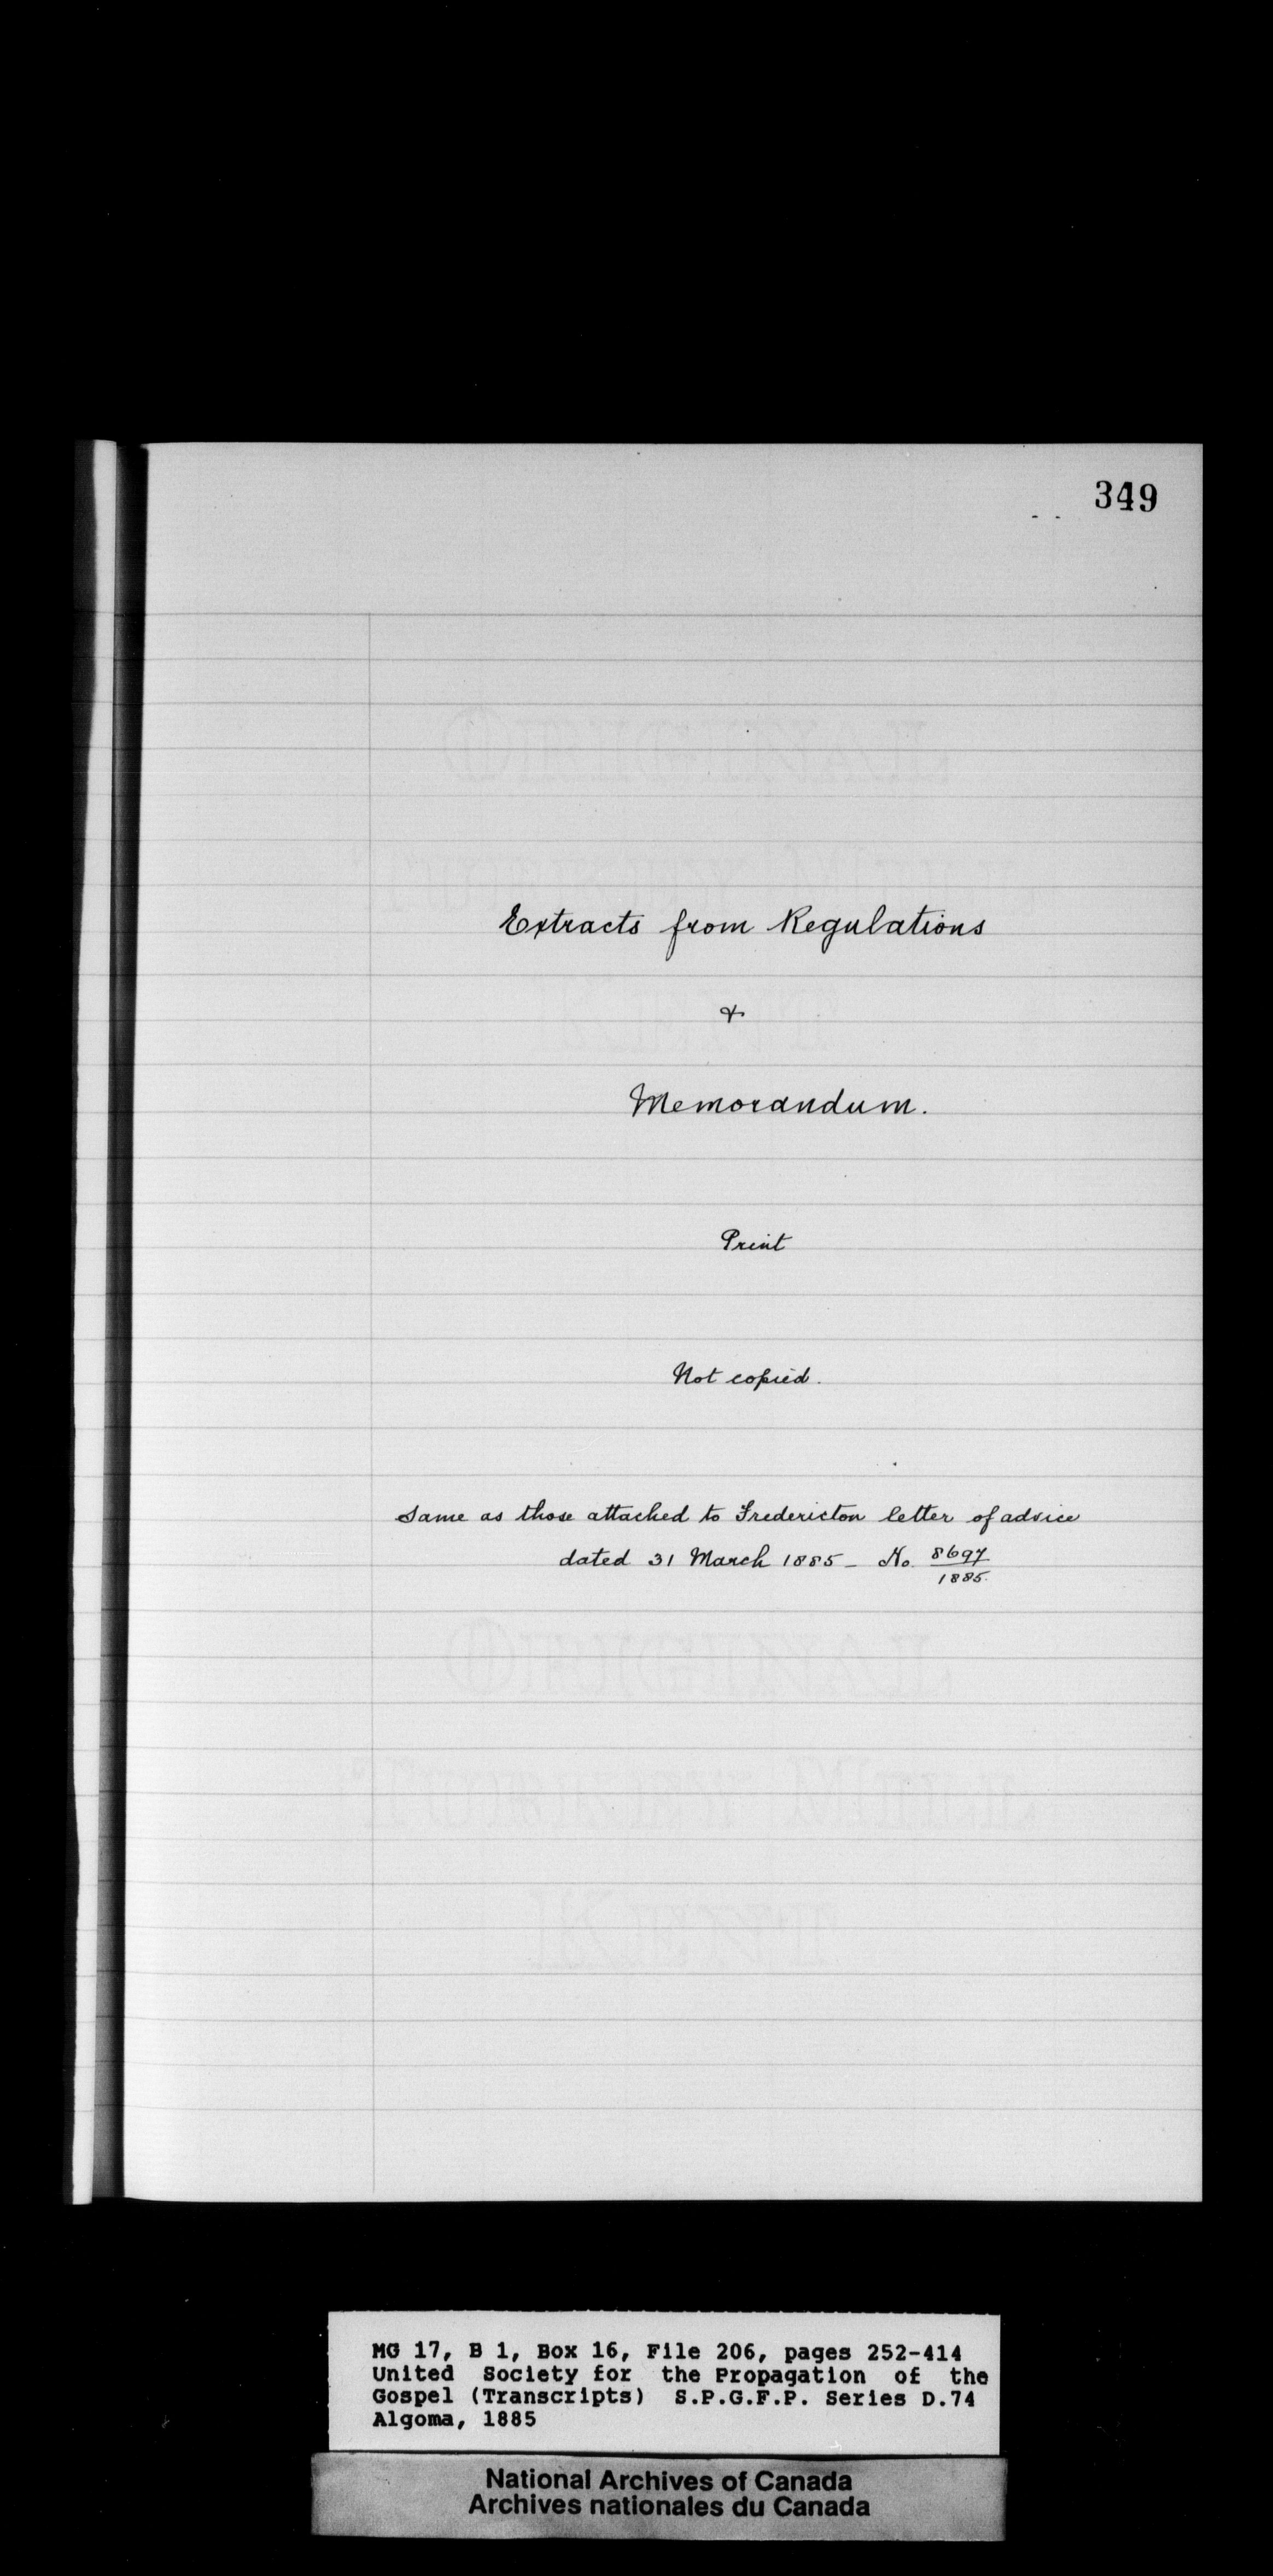 349
Extracts from Regulations
&
Memorandum.
Print
Not copied.
Same as those attached to Fredericton letter of advice
dated 31 March 1885 - No. 8697
1885.
MG 17, B 1, Box 16, File 206, pages 252-414
United Society for the Propagation of the
Gospel (Transcripts) S.P.G.F.P. Series D.74
Algoma, 1885
National Archives of Canada
Archives nationales du Canada